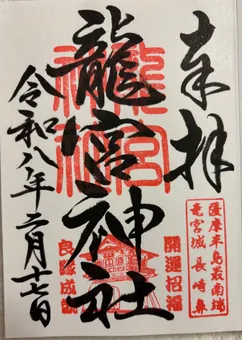 奉拝
薩摩半島最南端
竜宮城 長崎鼻
開運招福
龍宮神社
龍宮
神社
良縁成就
令和八年二月十七日